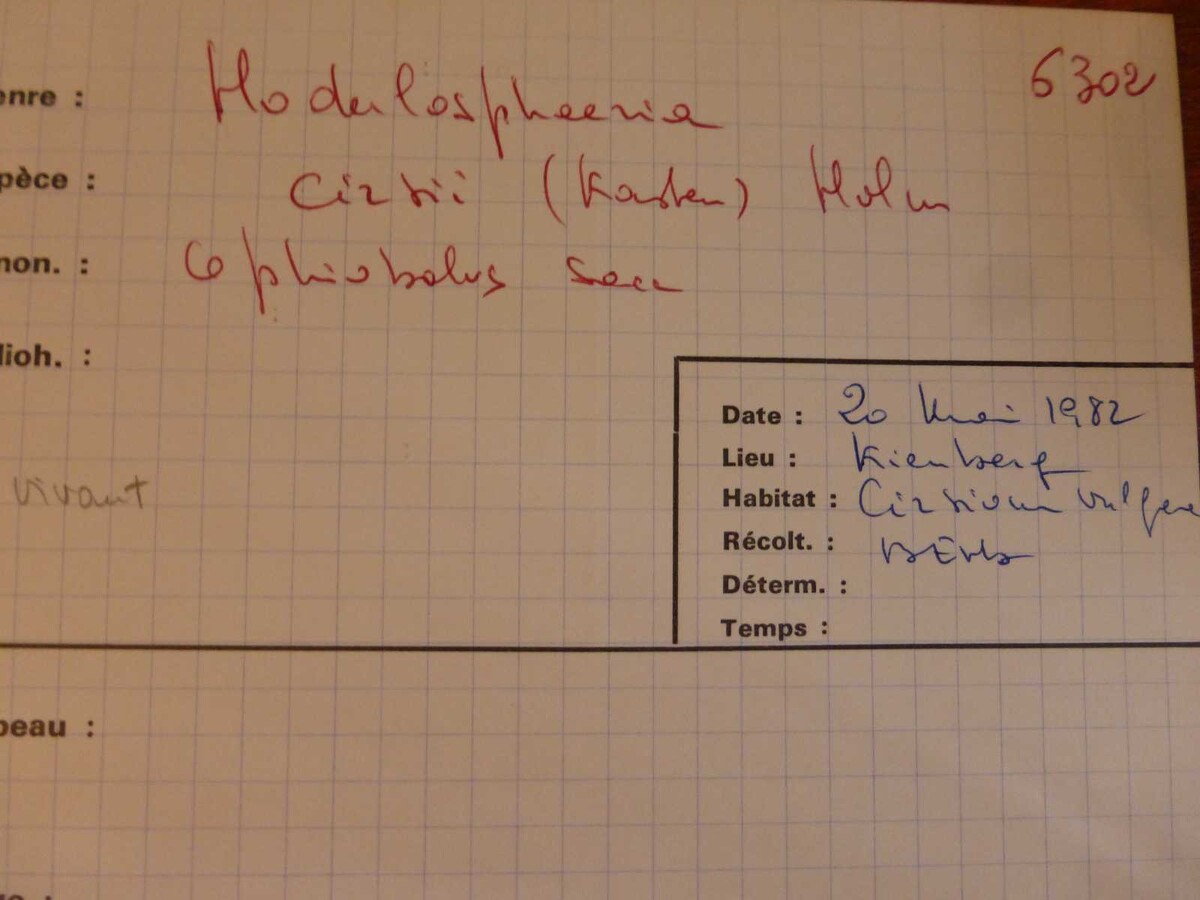 6302
enre : Hodulosphaeria
pèce : Cirsii (Karsten) Holm
non. : Ophiobolus sacc
lioh. :
vivant
Date : 20 mai 1982
Lieu : Kienberg
Habitat : Cirsium vulgare
Récolt. :
Déterm. :
Temps :
peau :